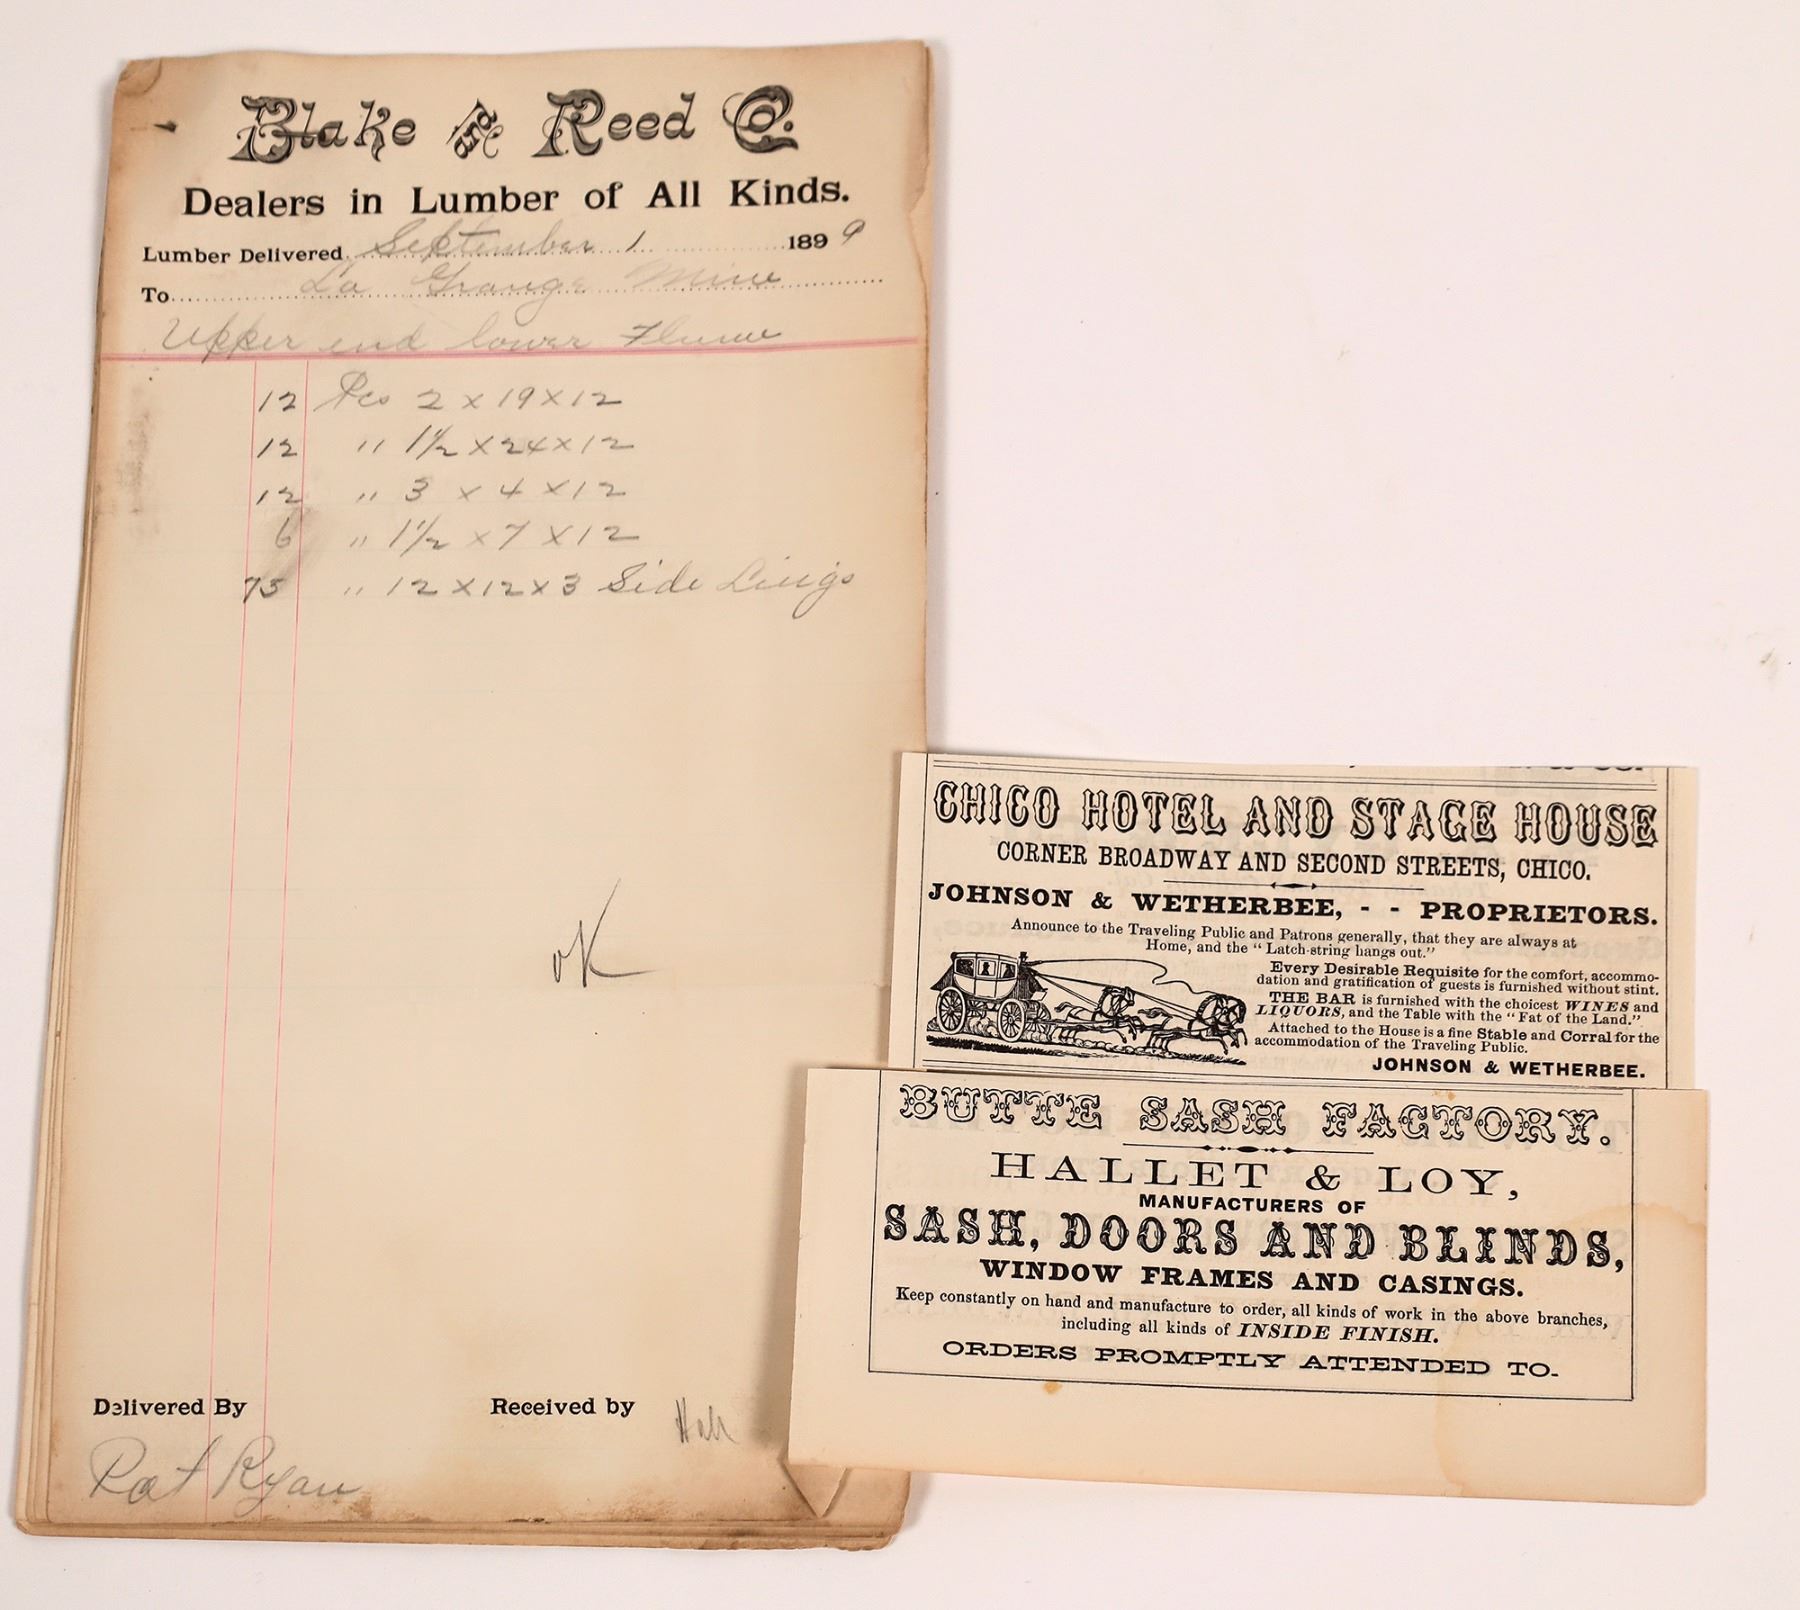 Blake and Reed Co.
Dealers in Lumber of All Kinds.
Lumber Delivered September 1 1899
To La Grange Mine
Upper end lower Flume
12 Pcs 2 x 19 x 12
12 " 1 1/2 x 24 x 12
12 " 3 x 4 x 12
6 " 1 1/2 x 7 x 12
75 " 12 x 12 x 3 Side Linigs
OK
Delivered By Received by
Pat Ryan
CHICO HOTEL AND STAGE HOUSE
CORNER BROADWAY AND SECOND STREETS, CHICO.
JOHNSON & WETHERBEE, - - PROPRIETORS.
Announce to the Traveling Public and Patrons generally, that they are always at
Home, and the "Latch-string hangs out."
Every Desirable Requisite for the comfort, accommo-
dation and gratification of guests is furnished without stint.
THE BAR is furnished with the choicest WINES and
LIQUORS, and the Table with the "Fat of the Land."
Attached to the House is a fine Stable and Corral for the
accommodation of the Traveling Public.
JOHNSON & WETHERBEE.
BUTTE SASH FACTORY.
HALLET & LOY,
MANUFACTURERS OF
SASH, DOORS AND BLINDS,
WINDOW FRAMES AND CASINGS.
Keep constantly on hand and manufacture to order, all kinds of work in the above branches,
including all kinds of INSIDE FINISH.
ORDERS PROMPTLY ATTENDED TO.